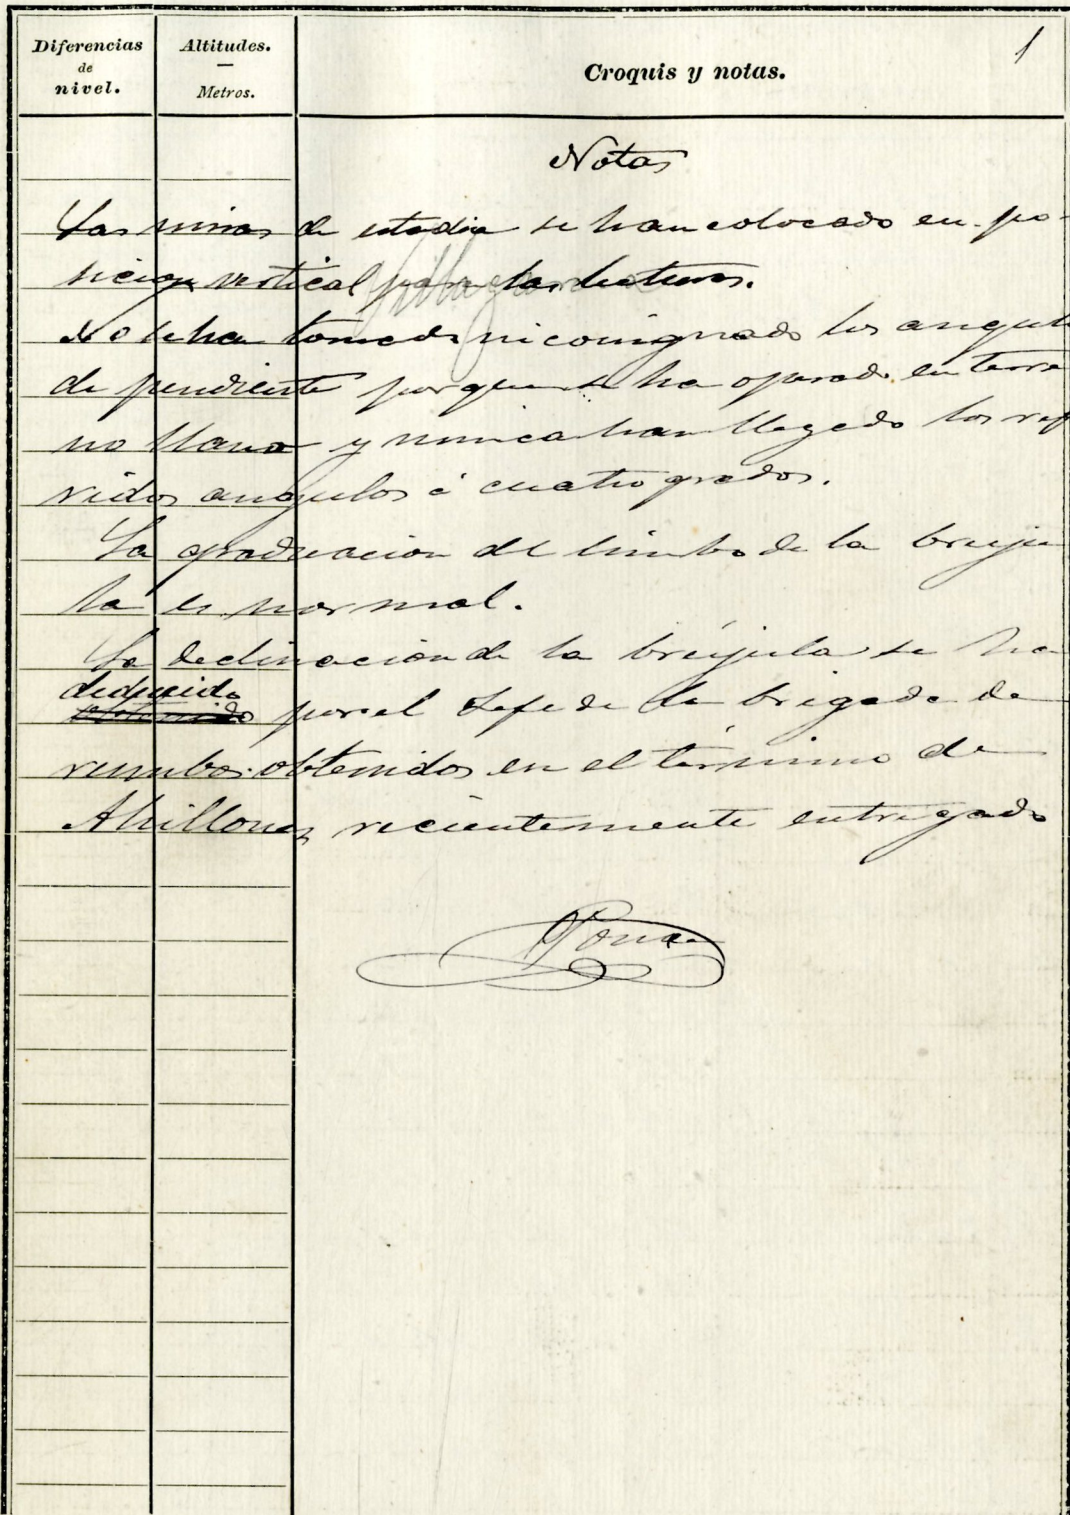 Diferencias
de
nivel.
Altitudes.
Metros.
Croquis y notas.
1
Notas
Las miras de estadia se han colocado en po-
sicion vertical para las lecturas.
No se ha tomado ni consignado los angulo
de pendiente porque se ha operado en terre
no llano y nunca han llegado los refe
ridos angulos á cuatro grados.
La graduacion del limbo de la bruju
la es normal.
La declinacion de la brújula se ha
deducido
obtenido por el Jefe de la brigada de
rumbos obtenidos en el término de
Ahillones recientemente entregado
Ponce